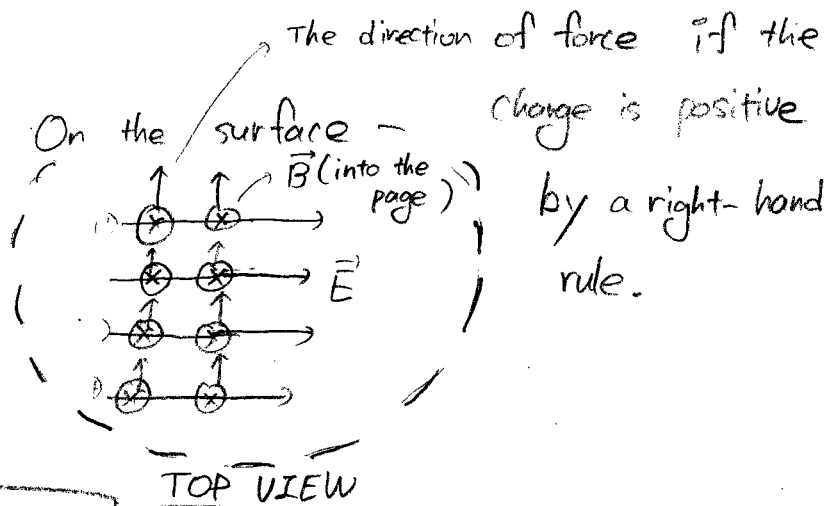 The direction of force if the
charge is positive
by a right-hand
rule.
On the surface
B⃗ (into the
page)
E⃗
TOP VIEW